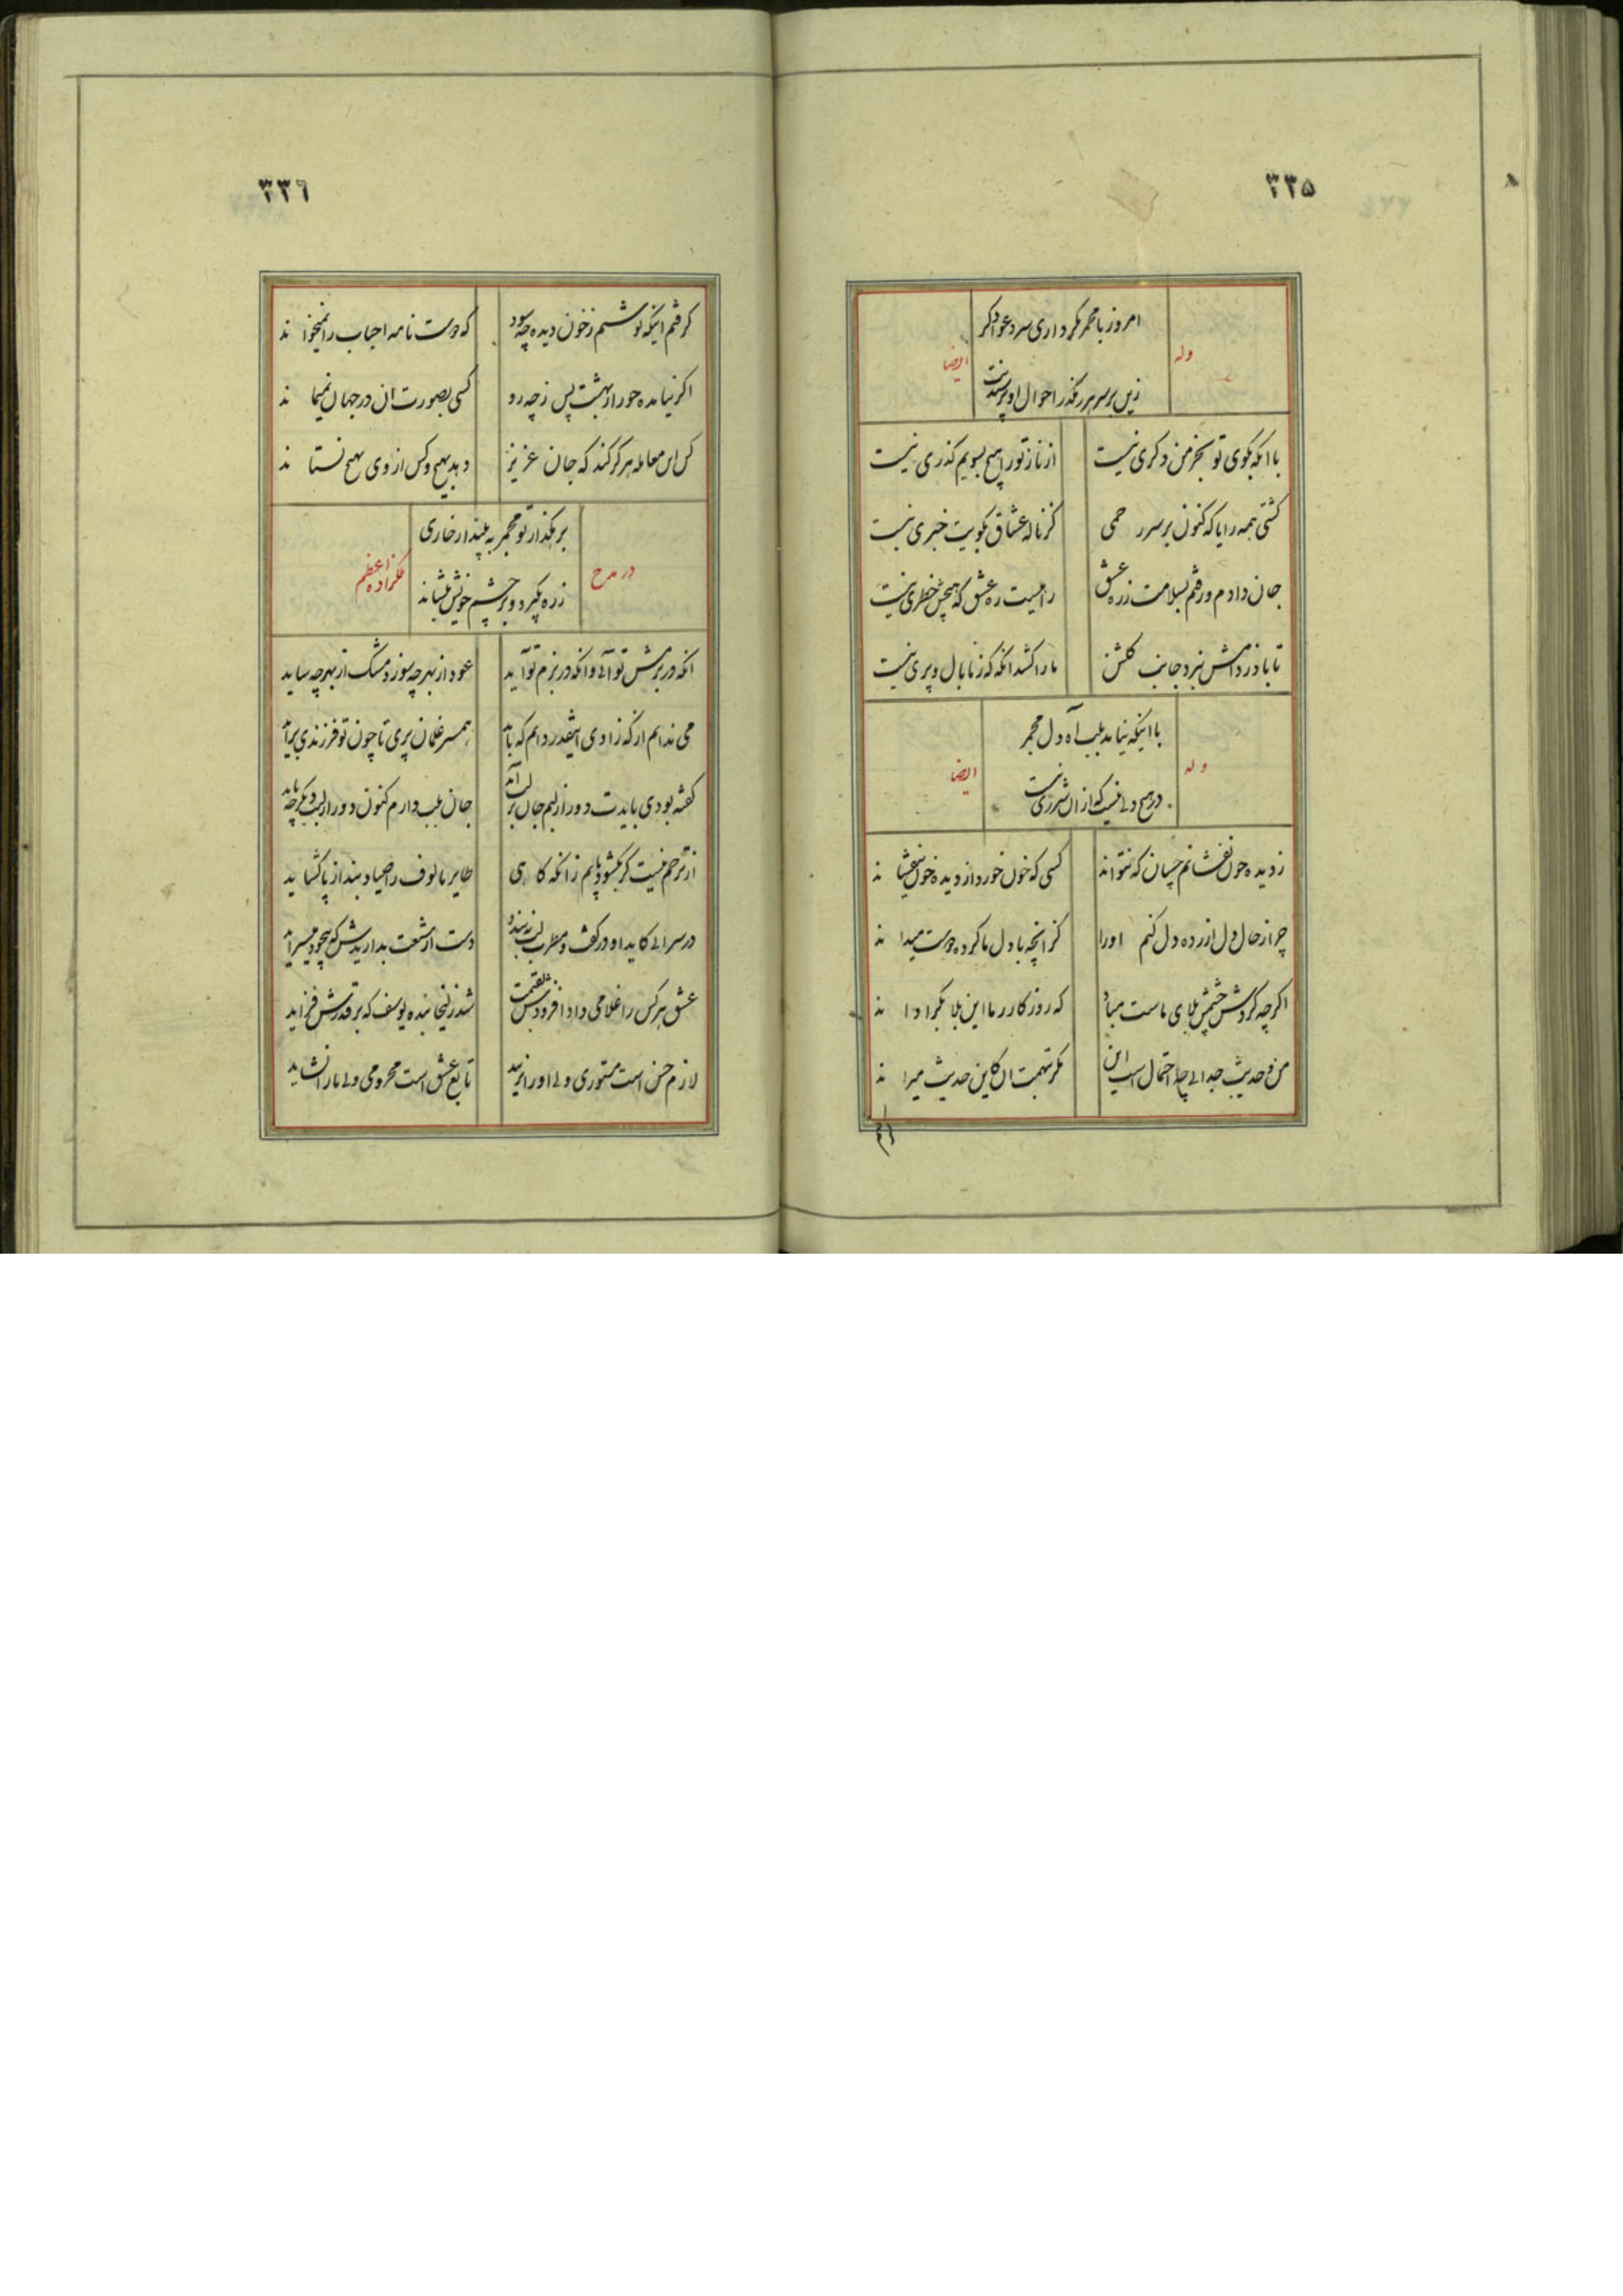 ۳۳۵
امروز با مجمر مگر داری سر دعوا دگر
وله
ایضا
زین بر سر هر رهگذر احوال او پرسیدنت
با آنکه بکوی تو بجز من دگری نیست
از ناز تو را هیچ بسویم گذری نیست
کشتی همه را یا که کنون بر سر رحمی
کز ناله عشاق بکویت خبری نیست
جان دادم و رفتم بسلامت ز ره عشق
راهیست ره عشق که هیچش خطری نیست
تا باد ز دامش نبرد جانب گلشن
ما را کشد آنکه که ز ما بال و پری نیست
با اینکه نیامد بلب آه دل مجمر
وله
ایضا
در هیچ دلی نیست که از آن شرری نیست
ز دیده خون نفشانم چسان که نتواند
کسی که خون خورد از دیده خون نیفشاند
چرا ز حال دل آزرده دل کنم او را
کز آنچه با دل ما کرده دوست میداند
اگر چه گردش چشمش بلای ماست مباد
که روزگار ز ما این بلا بگرداند
من و حدیث جدایی چه احتمال است این
مگر تهمت آن کاین حدیث میراند
۳۳۶
گرفتم اینکه نوشتم ز خون دیده چه سود
که دوست نامه احباب را نمیخواند
اگر نیامده حور از بهشت پس ز چه رو
کسی بصورت آن در جهان نمیماند
کس این معامله هرگز کند که جان عزیز
دهد بهیچ و کس از وی بهیچ نستاند
بر هگذار تو مجمر به بیند ار خاری
در مدح
ملکزاده اعظم
ز ره بگیرد و بر چشم خویش بنشاند
آنکه در بزمش تو آئی وانکه در بزم تو آید
عود از بهر چه سوزد مشک از بهر چه ساید
می ندانم از که زادی اینقدر دانم که باید
همسر غلمان پری تا چون تو فرزندی بزاید
گفته بودی بایدت دور از لبم جان بر لب آید
جان بلب دارم کنون دور از لبت دیگر چه باید
از ترحم نیست گر بگشود پایم زانکه گاهی
طایر مالوف را صیاد بند از پا گشاید
در سرائی کاید او در کف و مطرب لب ببندد
دست از شنعت بدارید ش که بیخود میسراید
عشق هر کس را غلامی داد افزودش بقیمت
شد زلیخا بنده یوسف که بر قدرش فزاید
لازم حسن است مستوری ولی او را نزیبد
تابع عشق است محرومی ولی ما را نشاید